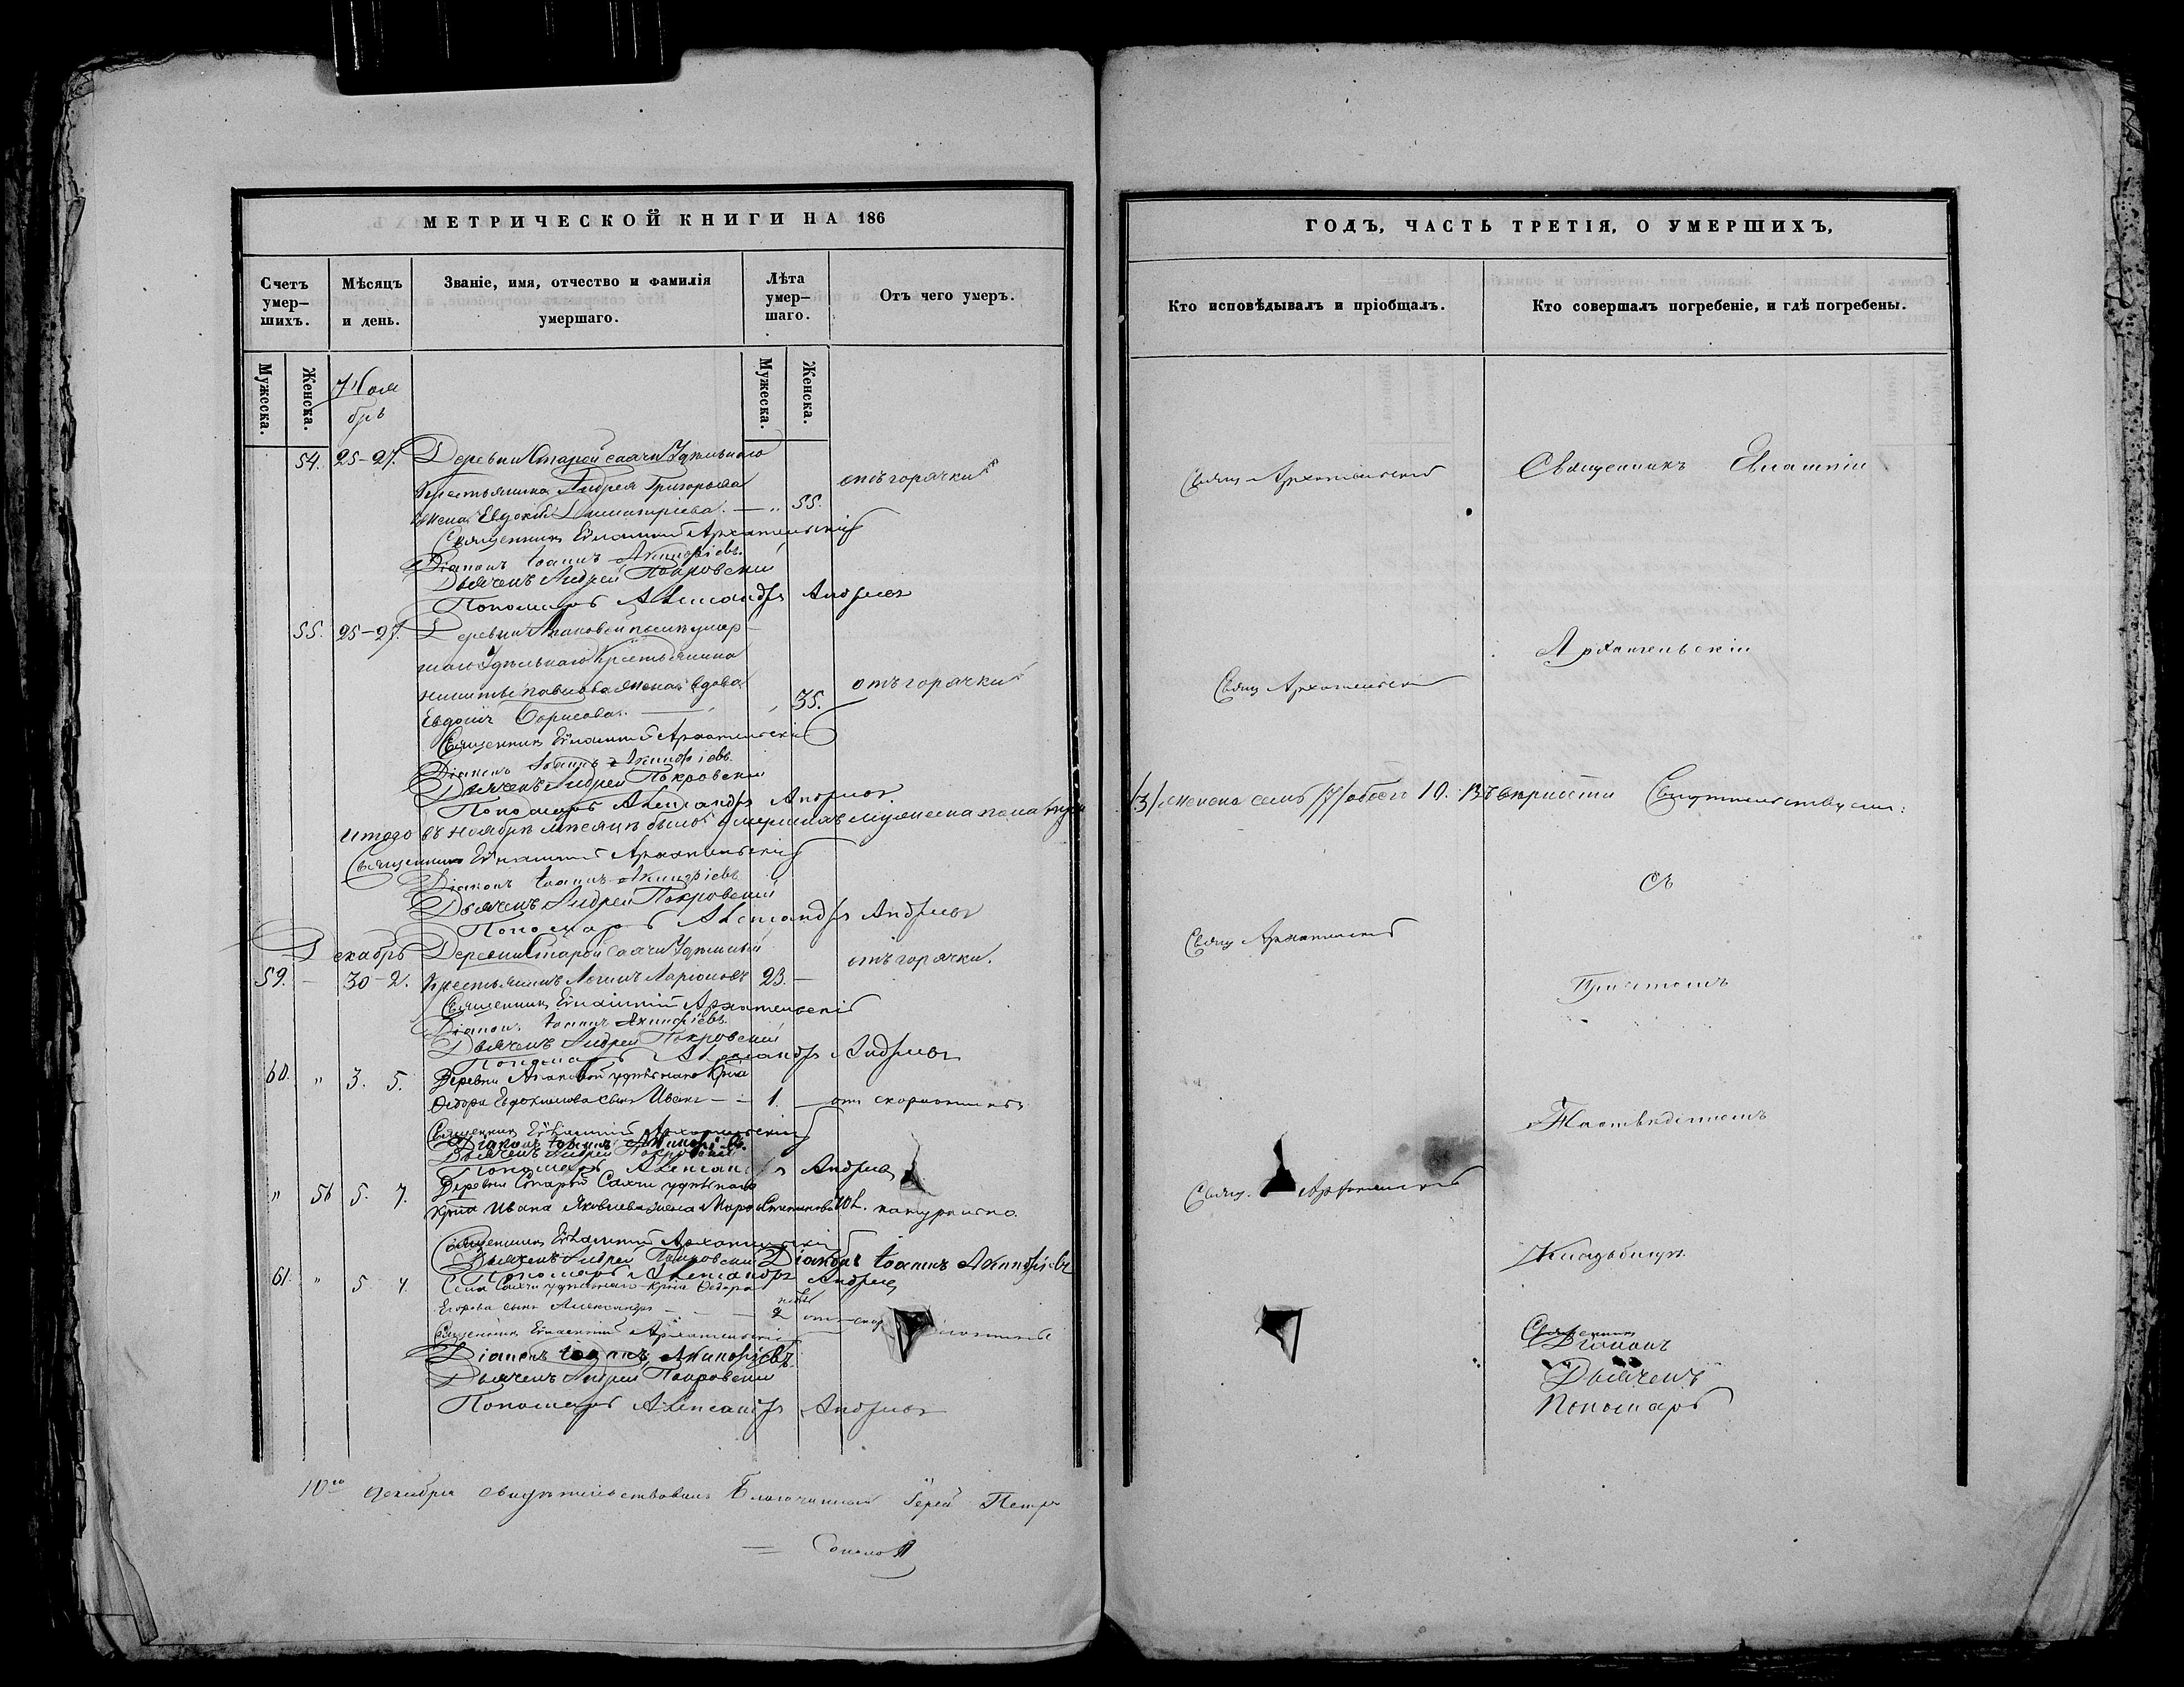 МЕТРИЧЕСКОЙ КНИГИ НА 186
Счетъ умер-шихъ.
Мѣсяцъ и день.
Званіе, имя, отчество и фамилія умершаго.
Лѣта умер-шаго.
Отъ чего умеръ.
Мужеска.
Женска.
Ноябрь
Мужеска.
Женска.
54. 25-27. Деревни Старой Саачи Удѣльнаго
крестьянина Андрея Григорьева
жена Евдокія Димитріева. — „ 55. отъ горячки
Священникъ Архангельскій
Діаконъ Іоаннъ Акинфіевъ.
Дьячекъ Андрей Покровскій
Пономарь Александръ Андреевъ
55. 25-27. Деревни умер-
шаго Удѣльнаго Крестьянина
Никиты Павлова жена вдова
Евдокія Борисова. 35. отъ горячки
Священникъ Архангельскій
Діаконъ Іоаннъ Акинфіевъ.
Дьячекъ Андрей Покровскій
Пономарь Александръ Андреевъ.
Итого въ ноябрѣ мѣсяцѣ было умершихъ мужеска пола
Священникъ Архангельскій
Діаконъ Іоаннъ Акинфіевъ
Дьячекъ Андрей Покровскій
Пономарь Александръ Андреевъ
Декабрь Деревни Старой Саачи Удѣльный
59. — 30-2. крестьянинъ Логинъ Ларіоновъ 23. — отъ горячки.
Священникъ Архангельскій
Діаконъ Іоаннъ Акинфіевъ.
Дьячекъ Андрей Покровскій
Пономарь Александръ Андреевъ
60. „ 3. 5. Деревни удѣльнаго Кр-на
Ѳедора Евдокимова сынъ Иванъ — 1. — отъ
Священникъ Архангельскій
Діаконъ Іоаннъ Акинфіевъ.
Дьячекъ Андрей Покровскій
Пономарь Александръ Андреев
„ 56 5. 7. Деревни Старой Саачи удѣльнаго
кр-на Ивана Яковлева жена Марѳа Степанова натурально.
Священникъ Архангельскій
Дьячекъ Андрей Покровскій Діаконъ Іоаннъ Акинфіевъ
Пономарь Александръ Андреев
61. „ 5. 7. Села Саачи удѣльнаго кр-на Ѳедора
Егорова сынъ Александръ — 2
Священникъ Архангельскій
Діаконъ Іоаннъ Акинфіевъ.
Дьячекъ Андрей Покровскій
Пономарь Александръ Андреевъ
10го декабря свидѣтельствовалъ Благочинный Іерей Петръ
Соколов
ГОДЪ, ЧАСТЬ ТРЕТІЯ, О УМЕРШИХЪ,
Кто исповѣдывалъ и пріобщалъ.
Кто совершалъ погребеніе, и гдѣ погребены.
Свящ. Архангельскій
Священникъ
Свящ. Архангельскій
Архангельскій
/3/ женска семь /7/ обоего 10. Въ вѣрности Свидѣтельствуемъ:
съ
Свящ. Архангельскій
Причтомъ
Свящ. Архангельскій
Кладбищѣ.
Священникъ
Діаконъ
Дьячекъ
Пономарь